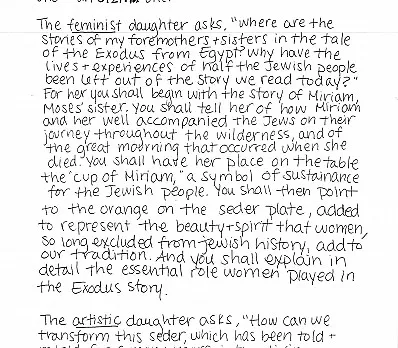 The feminist daughter asks, "Where are the
stories of my foremothers + sisters in the tale
of the Exodus from Egypt? Why have the
lives + experiences of half the Jewish people
been left out of the story we read today?"
For her you shall begin with the story of Miriam,
Moses' sister. You shall tell her of how Miriam
and her well accompanied the Jews on their
journey throughout the wilderness, and of
the great mourning that occurred when she
died. You shall have her place on the table
the "cup of Miriam," a symbol of sustainance
for the Jewish people. You shall then point
to the orange on the seder plate, added
to represent the beauty + spirit that women,
so long excluded from Jewish history, add to
our tradition. And you shall explain in
detail the essential role women played in
the Exodus story.
The artistic daughter asks, "How can we
transform this seder, which has been told +